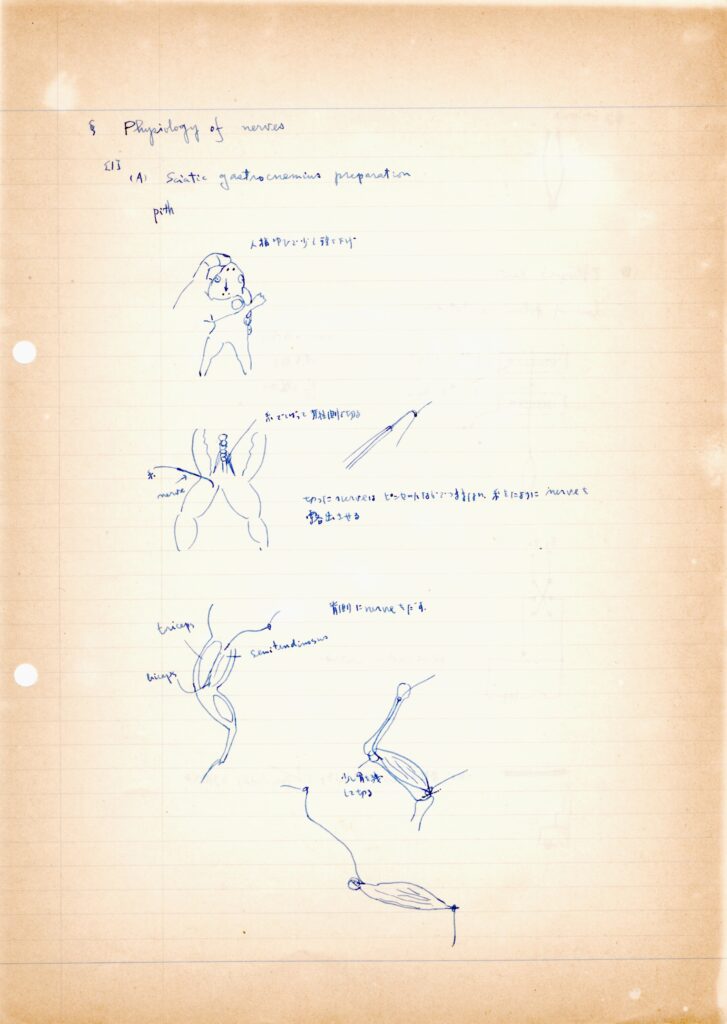 § Physiology of nerves
[1]
(A) Sciatic gastrocnemius preparation
pith
人指ゆびで少し頭を下げ
糸でしばって脊椎側を切る
糸
nerve
切った nerve は ピンセットなどでつままない、糸をたよりに nerve を
露出させる
背側に nerve をだす。
triceps
semitendinosus
biceps
少し骨を残
して切る